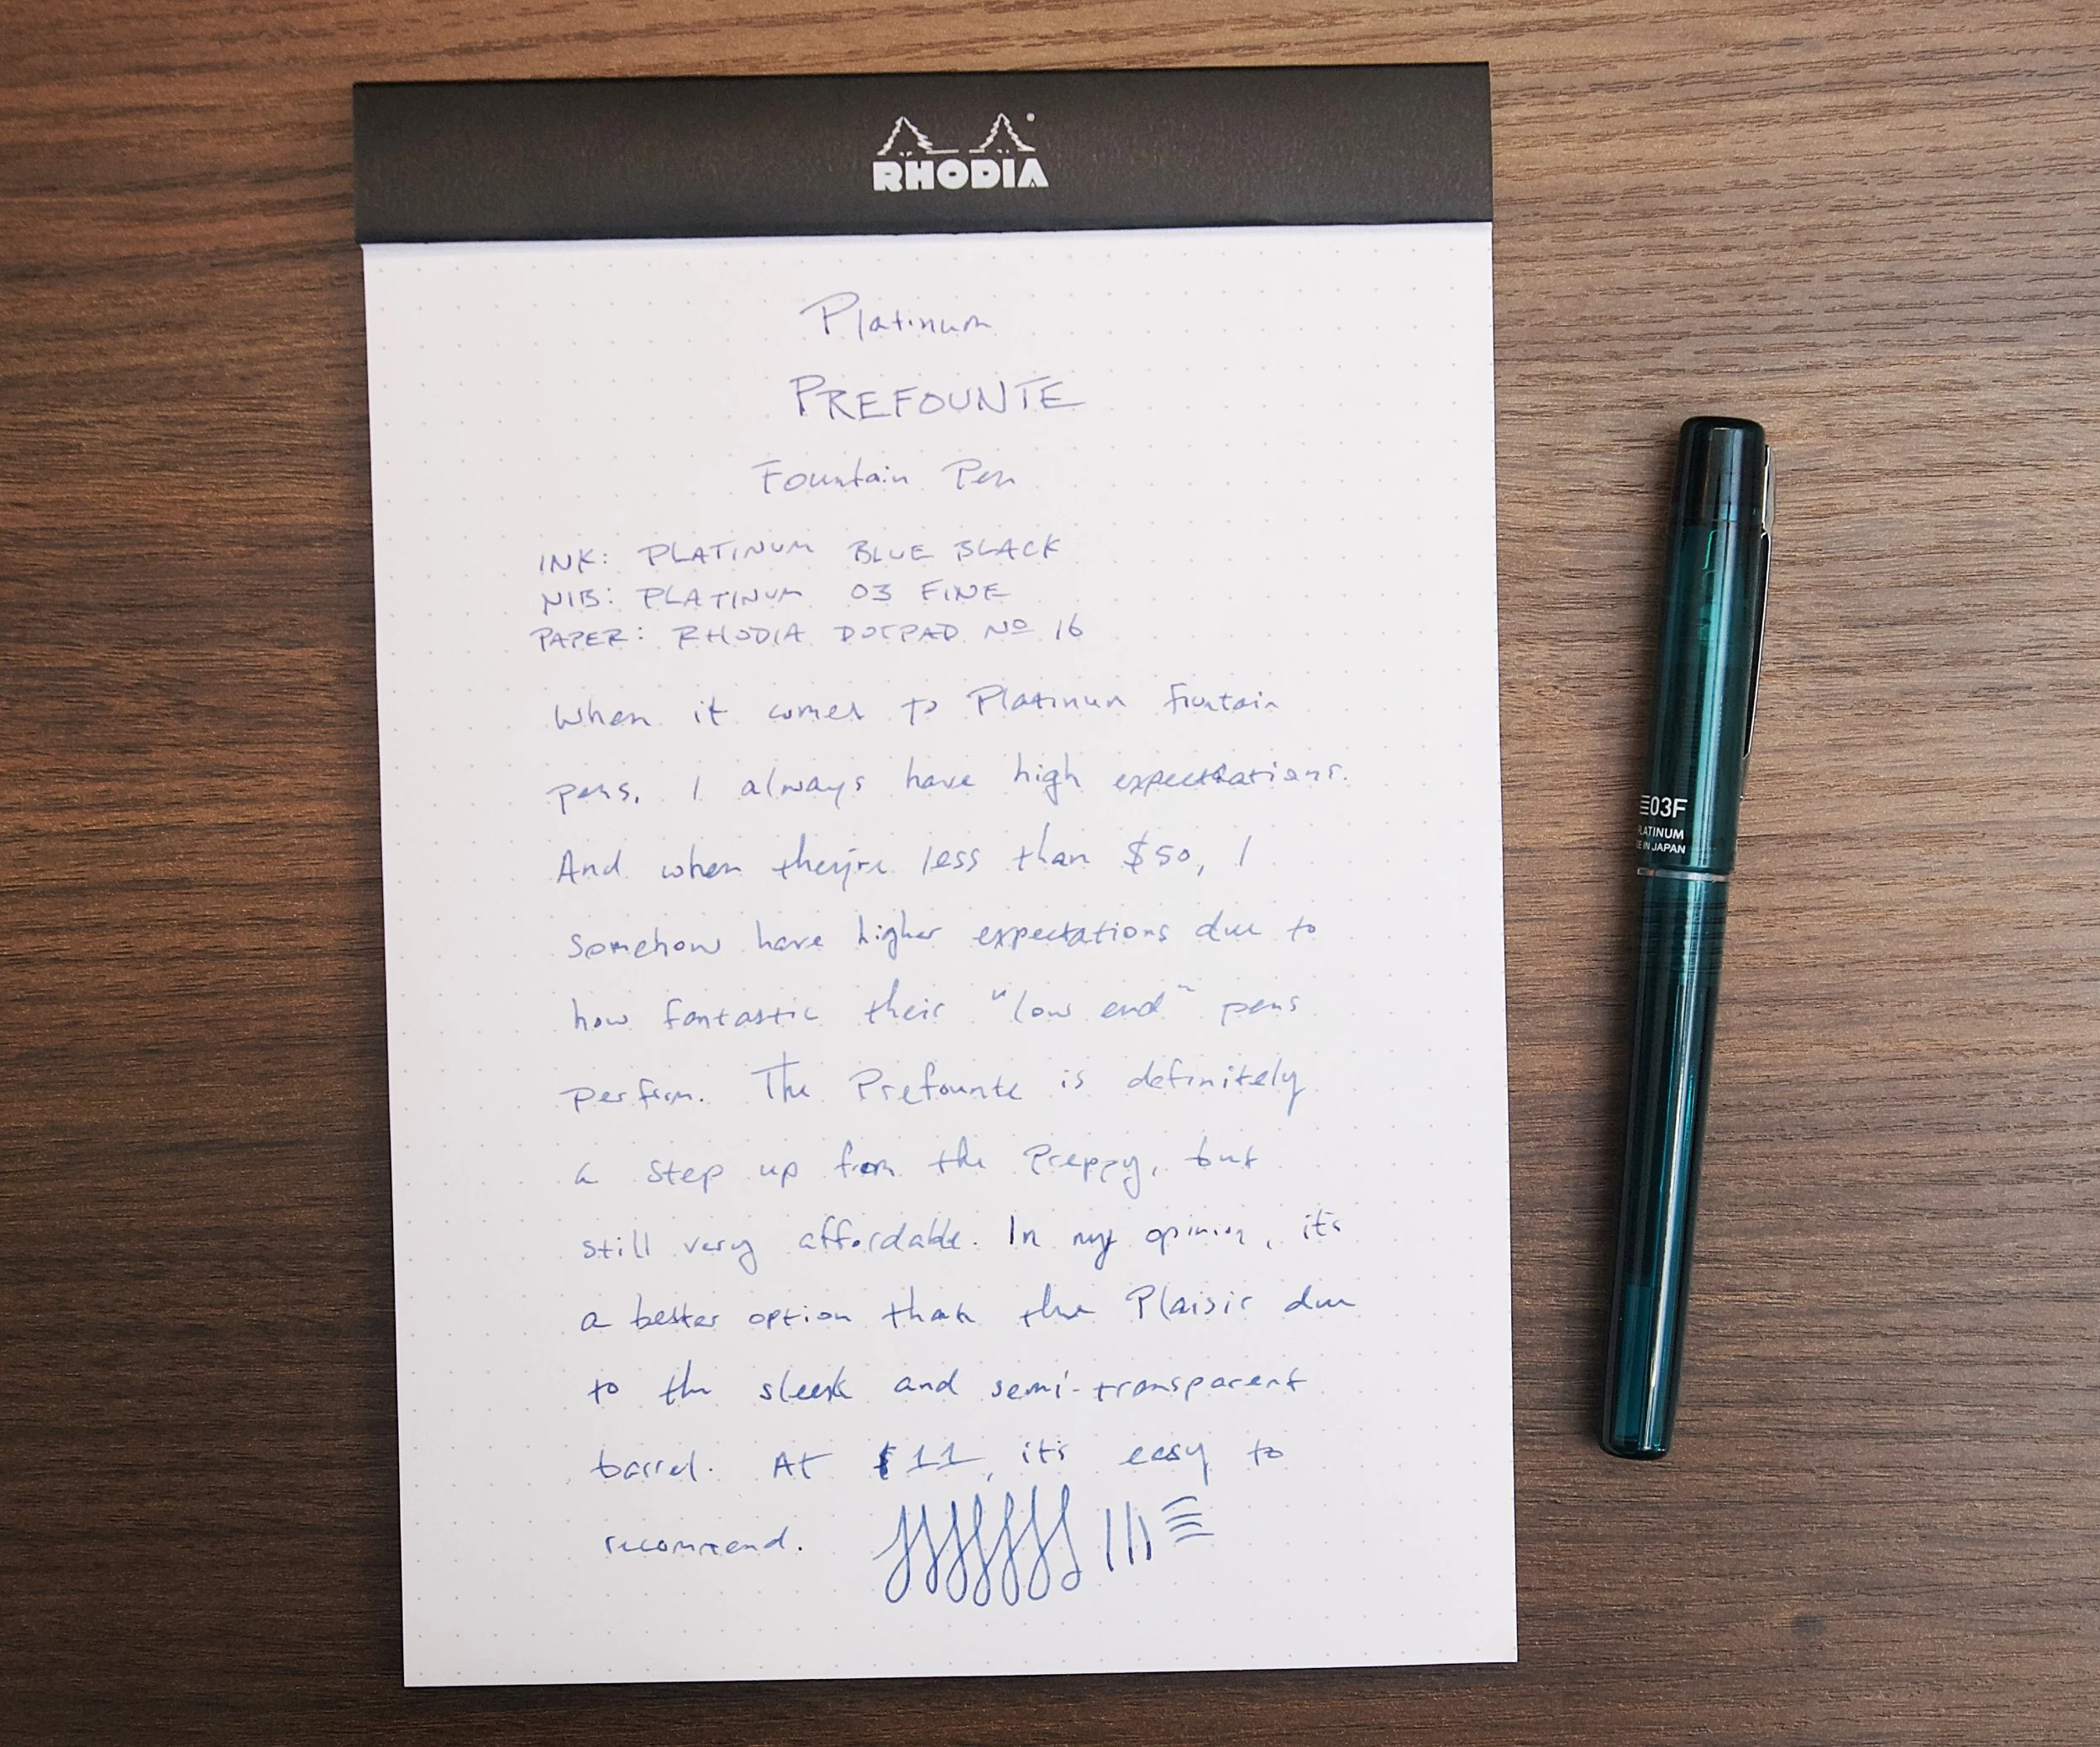 RHODIA
Platinum
PREFOUNTE
Fountain Pen
INK: PLATINUM BLUE BLACK
NIB: PLATINUM 03 FINE
PAPER: RHODIA DOTPAD Nº 16
When it comes to Platinum fountain
pens, I always have high expectations.
And when they're less than $50, I
somehow have higher expectations due to
how fantastic their "low end" pens
perform. The Prefounte is definitely
a step up from the Preppy, but
still very affordable. In my opinion, it's
a better option than the Plaisir due
to the sleek and semi-transparent
barrel. At $11, it's easy to
recommend.
03F
LATINUM
E IN JAPAN